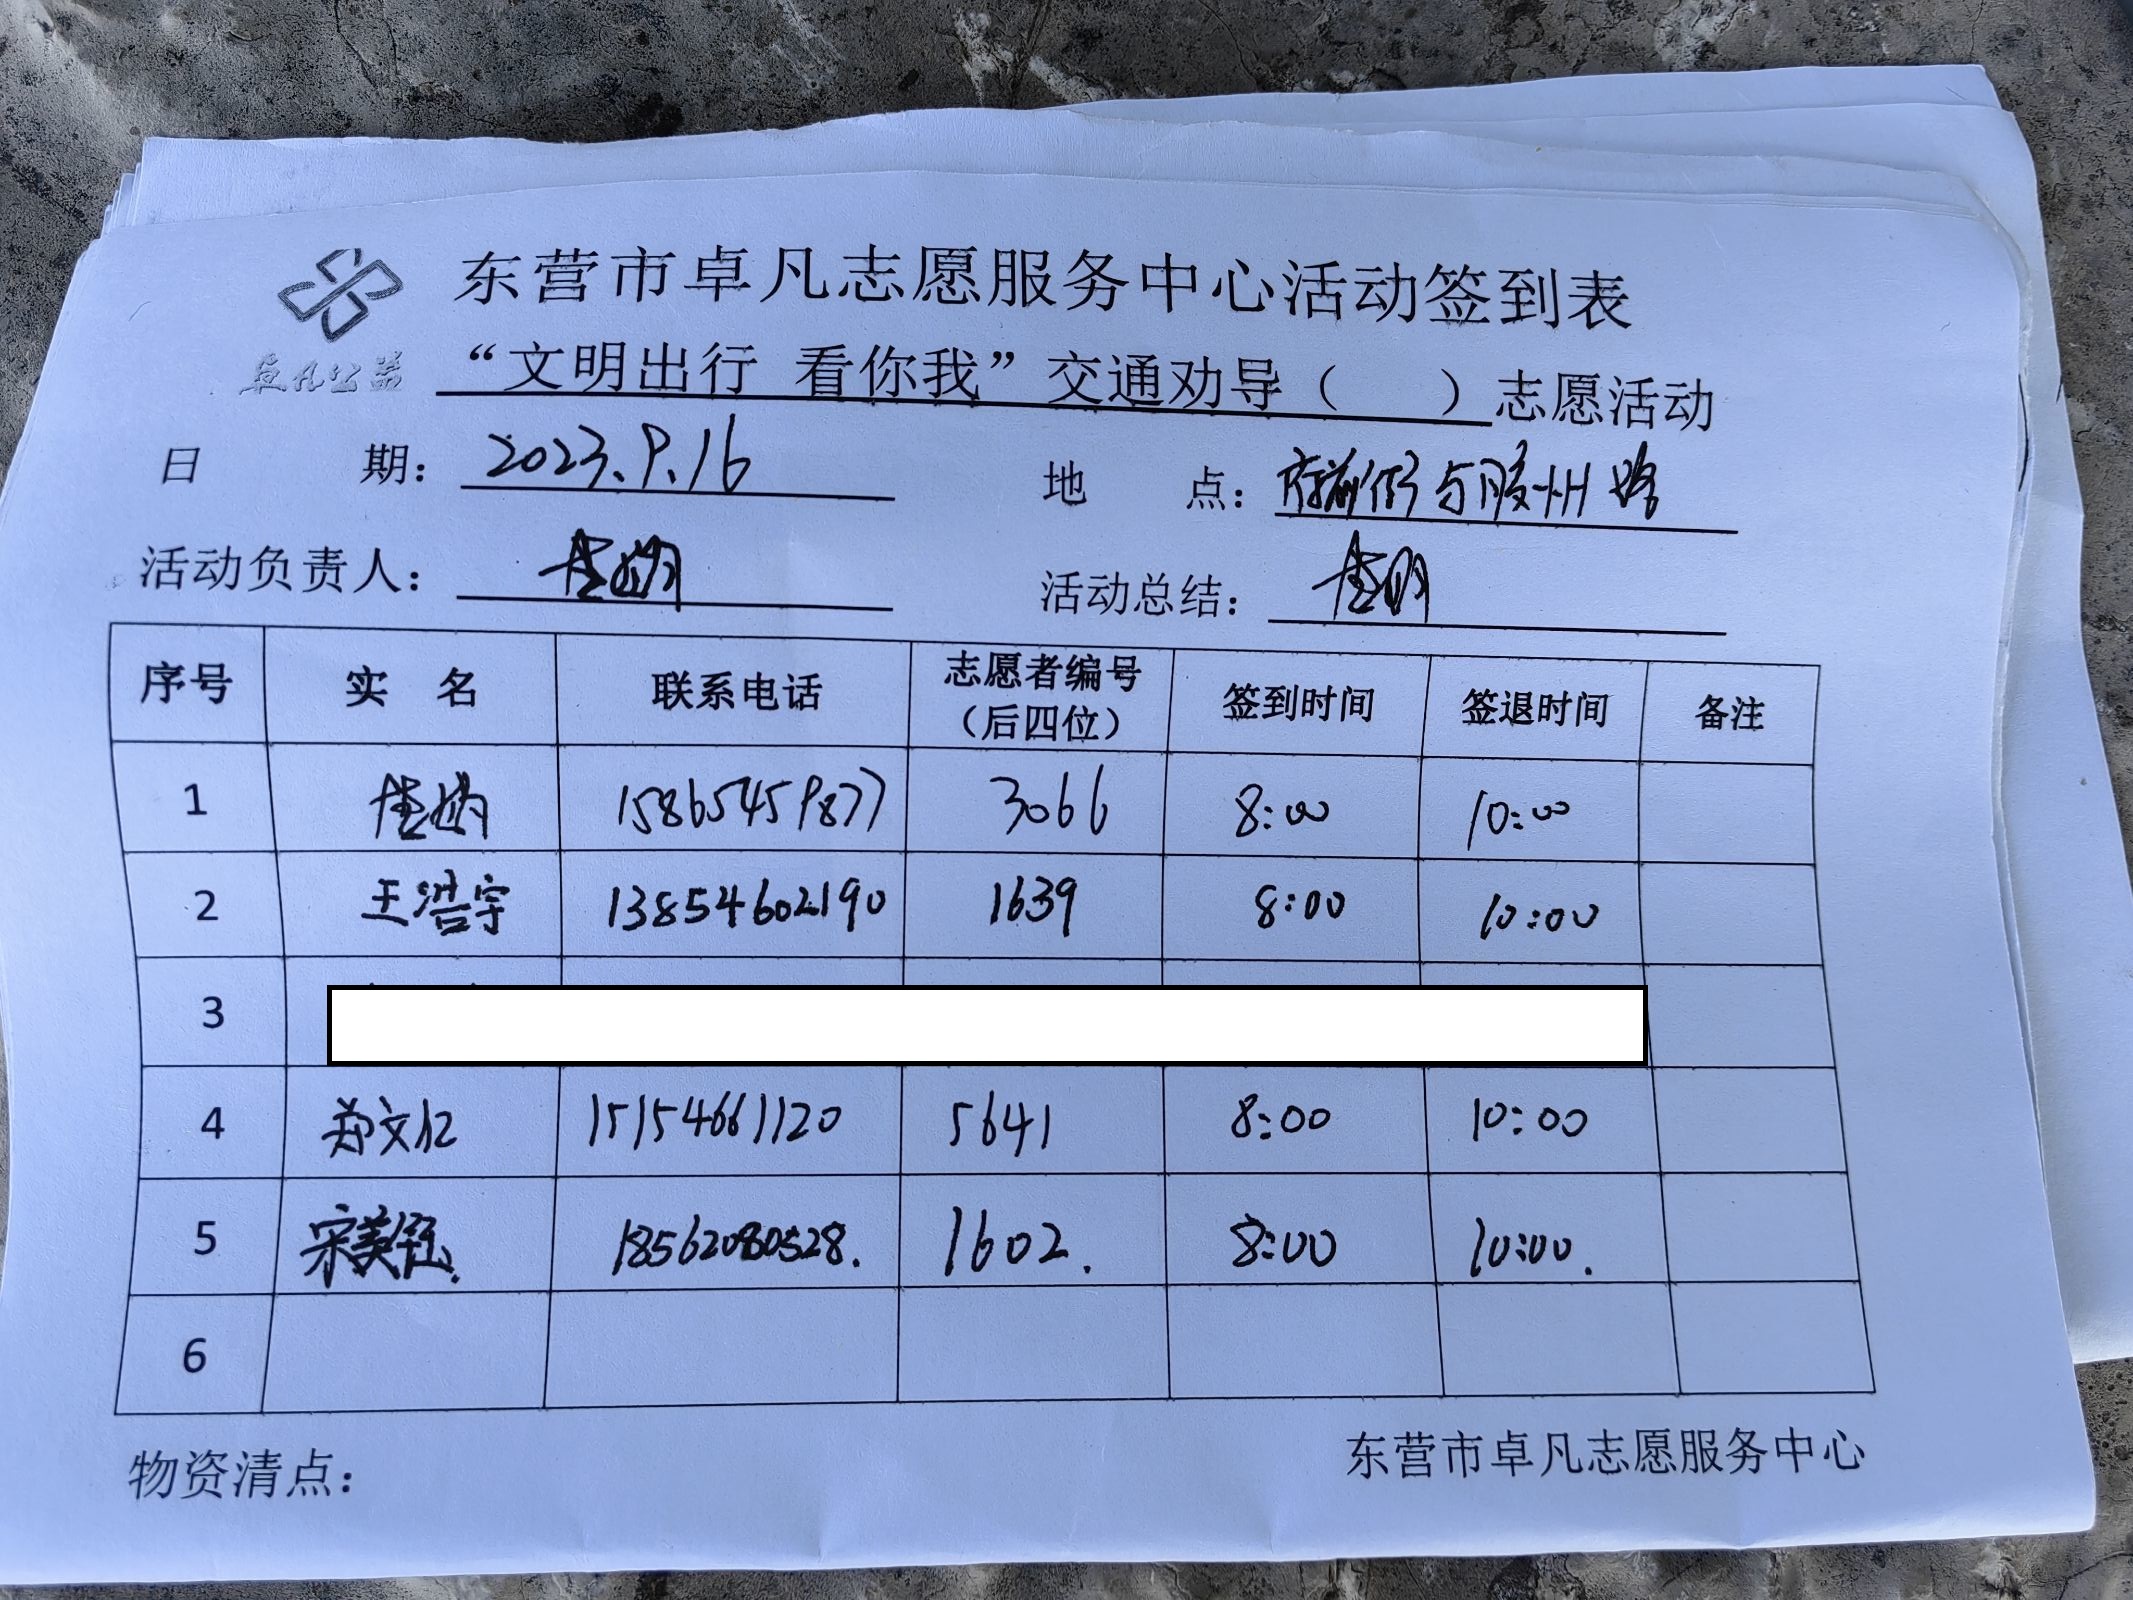 东营市卓凡志愿服务中心活动签到表
卓凡公益
“文明出行 看你我”交通劝导（ ）志愿活动
日 期：2023.9.16 地 点：府前街与胶州路
活动负责人： 活动总结：
序号 实 名 联系电话 志愿者编号（后四位） 签到时间 签退时间 备注
1 15865459877 3066 8:00 10:00
2 王浩宇 13854602190 1639 8:00 10:00
3
4 郑文仁 15154661120 5641 8:00 10:00
5 宋美钰. 18562080528. 1602. 8:00 10:00.
6
物资清点： 东营市卓凡志愿服务中心